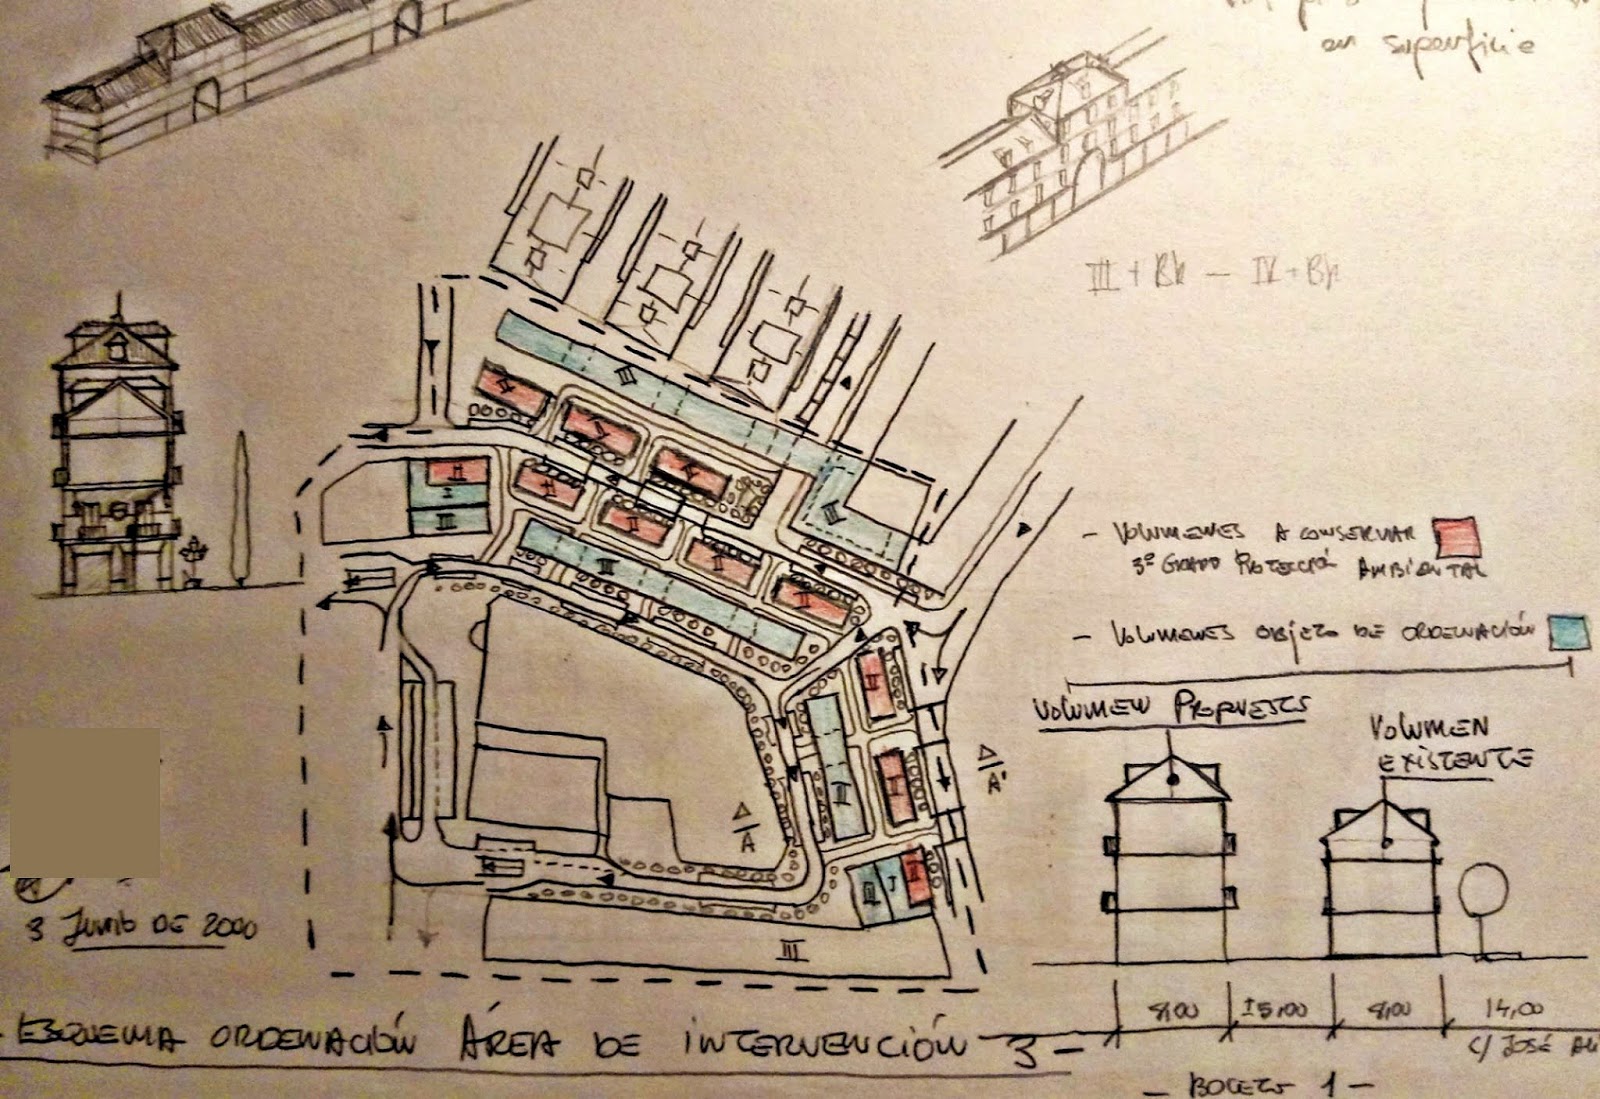 en superficie
III + Bk — IV + Bk
- VOLUMENES A CONSERVAR
3º GRADO PROTECCIÓN AMBIENTAL
- VOLUMENES OBJETO DE ORDENACIÓN
VOLUMEN PROPUESTO
VOLUMEN
EXISTENTE
III
II
I
III
II
III
III
II
III
II
III
I
III
A
A'
8,00
±5,00
8,00
14,00
C/ JOSÉ
3 JUNIO DE 2000
- ESQUEMA ORDENACIÓN ÁREA DE INTERVENCIÓN 3 -
- BOCETO 1 -